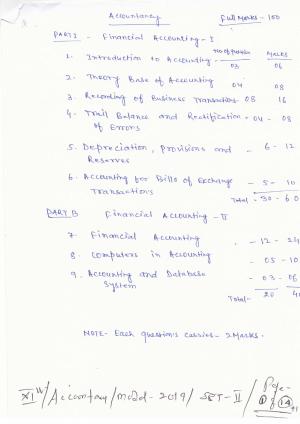 Accountancy Full Marks - 100
PART I - Financial Accounting - I
No of question Marks
1. Introduction to Accounting - 03 06
2. Theory Base of Accounting 04 08
3. Recording of Business Transactions - 08 16
4. Trail Balance and Rectification - 04 - 08
of Errors
5. Depreciation, Provisions and - 6 - 12
Reserves
6. Accounting for Bills of Exchange - 5 - 10
Transactions
Total - 30 - 60
PART B Financial Accounting - II
7. Financial Accounting - 12 - 24
8. Computers in Accounting - 05 - 10
9. Accounting and Database - 03 - 06
System
Total - 20 40
NOTE - Each question's carries - 2 Marks.
XIth / Accountancy / model - 2019 / SET - II / Page -
1 of 14